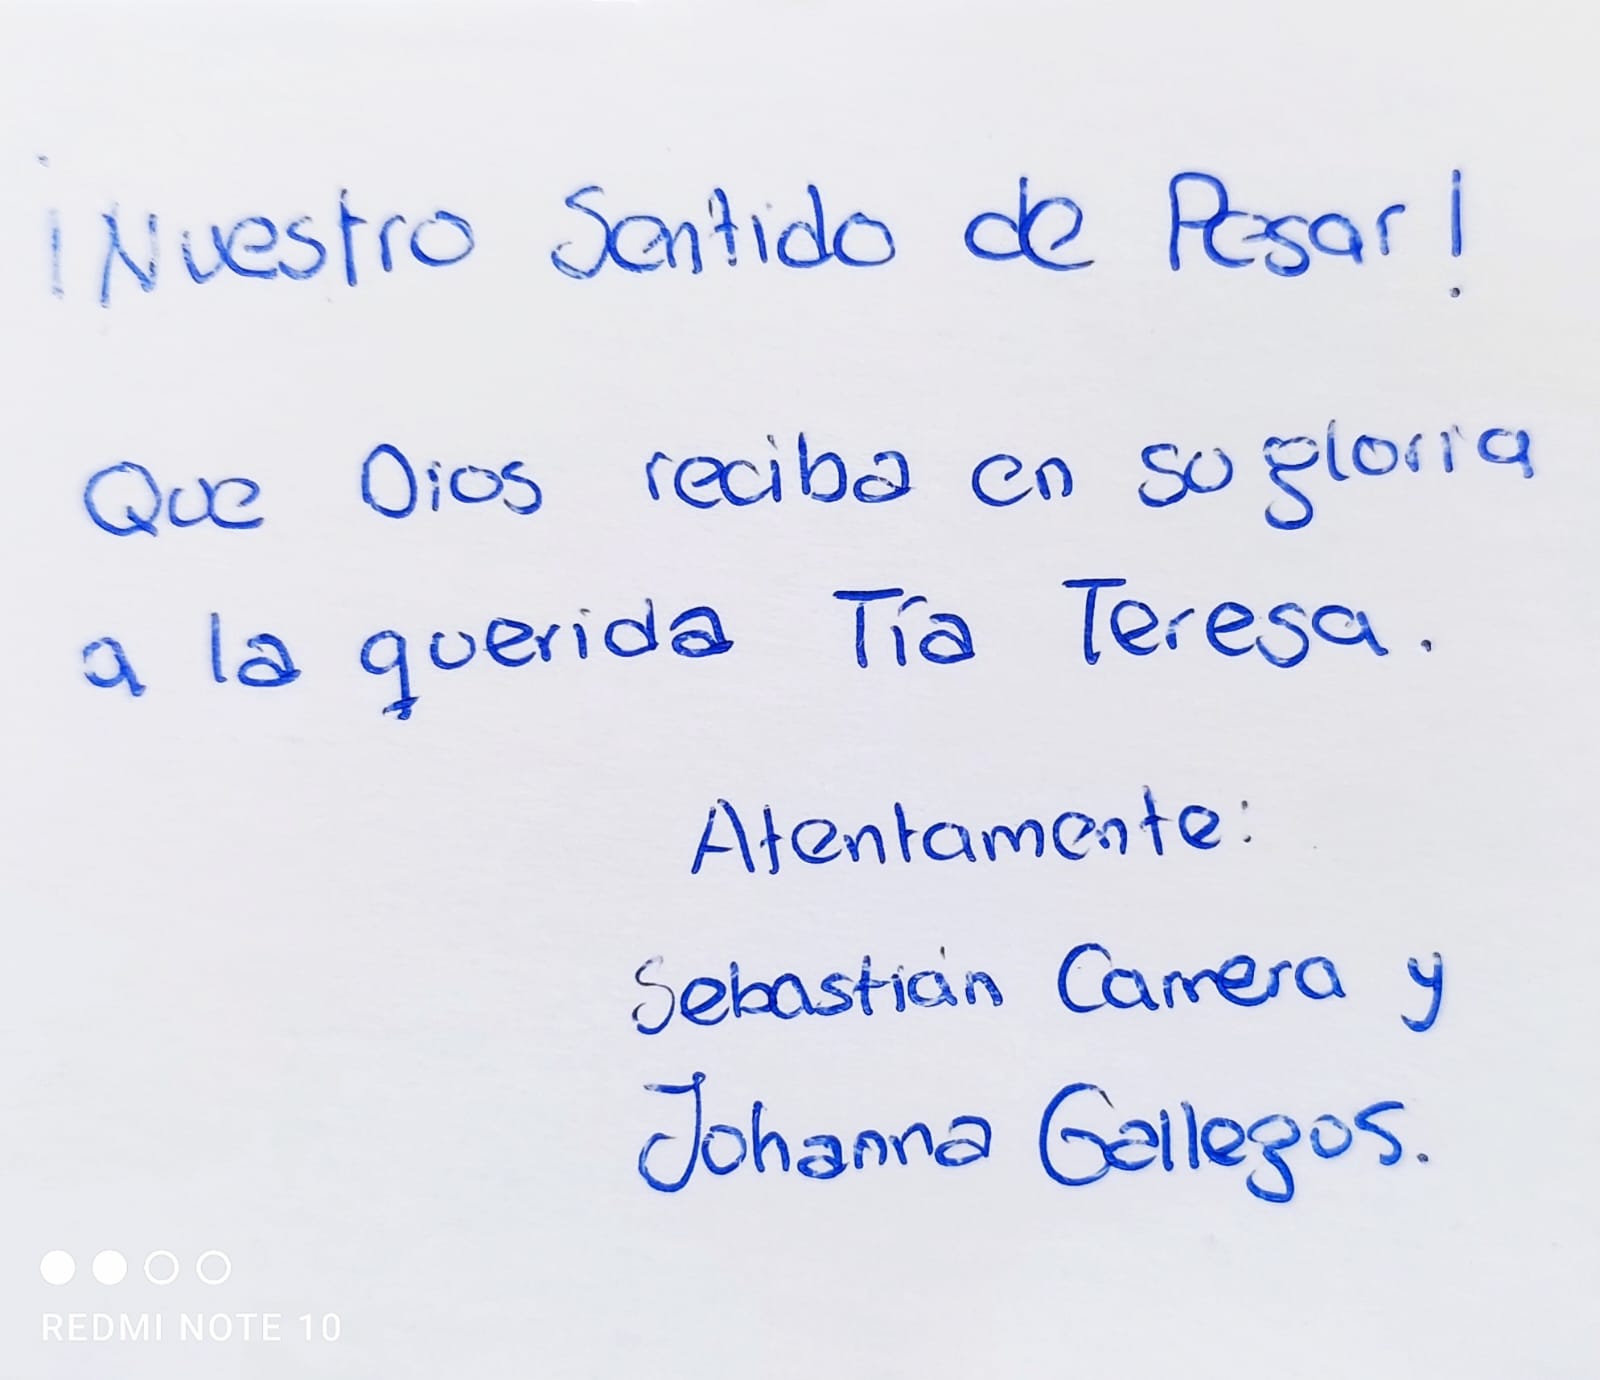 ¡Nuestro Sentido de Pesar!
Que Dios reciba en su gloria
a la querida Tía Teresa.
Atentamente:
Sebastián Carrera y
Johanna Gallegos.
REDMI NOTE 10